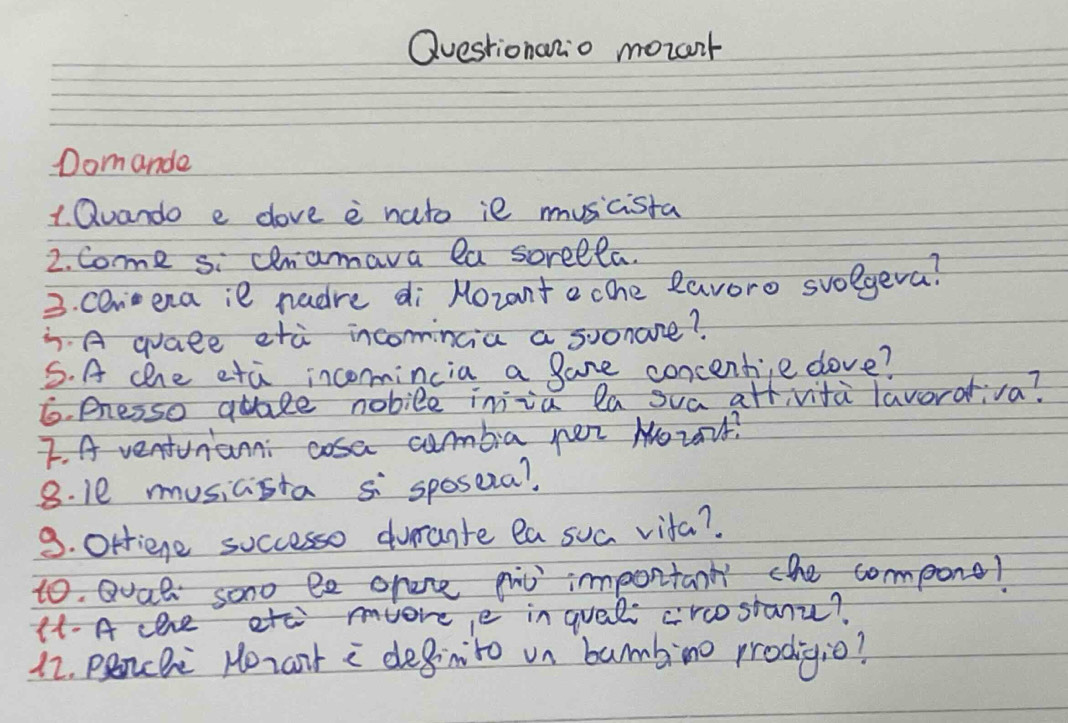 Questionario mozart
Domande
1. Quando e dove è nato il musicista
2. Come si chiamava la sorella.
3. Chi era il padre di Mozart e che lavoro svolgeva?
4. A quale età incomincia a suonare?
5. A che età incomincia a fare concerti, e dove?
6. Presso quale nobile inizia la sua attività lavorativa?
7. A ventun'anni cosa cambia per Mozart?
8. Il musicista si sposera?
9. Ottiene successo durante la sua vita?
10. Quali sono le opere più importanti che compone?
11. A che età muore, e in quali circostanze?
12. Perchè Mozart è definito un bambino prodigio?